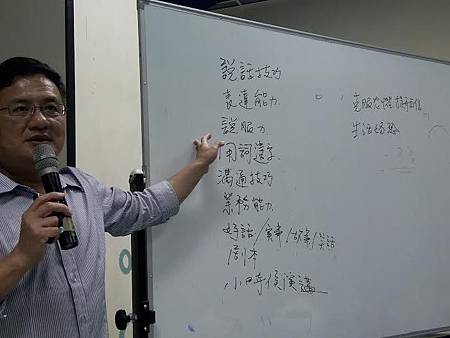 説話技巧
表達能力
説服力
用詞遣字
溝通技巧
業務能力
好話/實事/故事/笑話
劇本
小時侯演講
克服恐懼
生活經驗